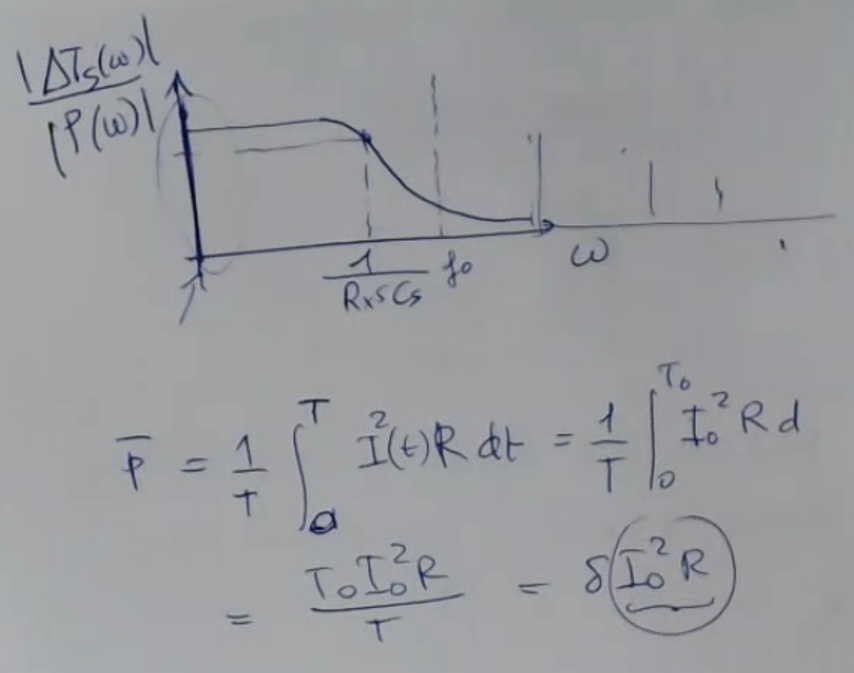 |ΔTs(ω)|
|P(ω)|
1 f0 ω
RxsCs
P̄ = 1/T ∫₀ᵀ I²(t)R dt = 1/T ∫₀ᵀ⁰ I₀² R d
= T₀I₀²R/T = δ I₀²R